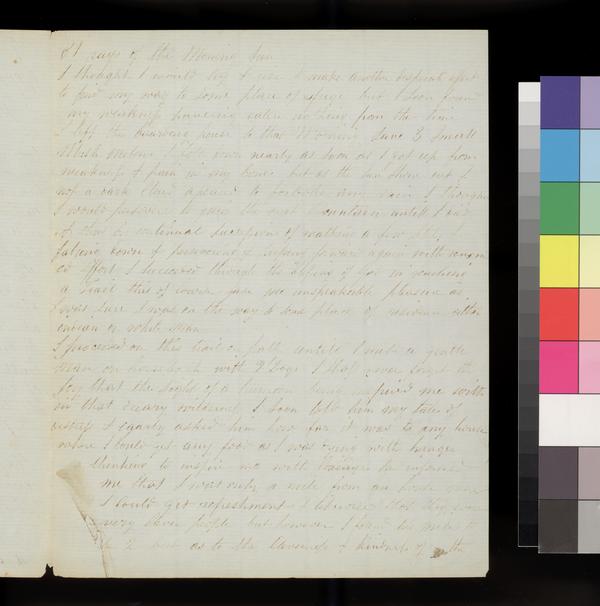 rays of the Morning Sun
I thought I would try & use & make another desperate effort
to find my way to some place of refuge but I soon found
my weakness having eaten nothing from the time
I left the boarding house to that Morning save 3 small
Mush melons I fell down nearly as soon as I got up from
weakness & pain in my bones but as the sun shone out &
not a dark cloud appeared to forbode any rain I thought
I would persevere to gain the next mountain until I had
it that a continual succession of walking a few steps &
falling down & persevering & jumping forward again with
effort I succeeded through the of God in reaching
a trail this of course gave me unspeakable pleasure as
I was sure I was on the way to some place of residence either
indian or white Man
I proceeded on this trail or path until I met a gentle
man on horseback with 2 Dogs I shall never forget the
Joy that the sight of a human being inspired me with
in that dreary wilderness I soon told him my tale of
distress & eagerly asked him how far it was to any house
where I could get any food as I was dying with hunger
thinking to inspire me with courage he informed
me that I was only a mile from an house where
I could get refreshment & likewise that they were
very clever people but however I found his mile to
be 2 and as to the cleverness & kindness of the